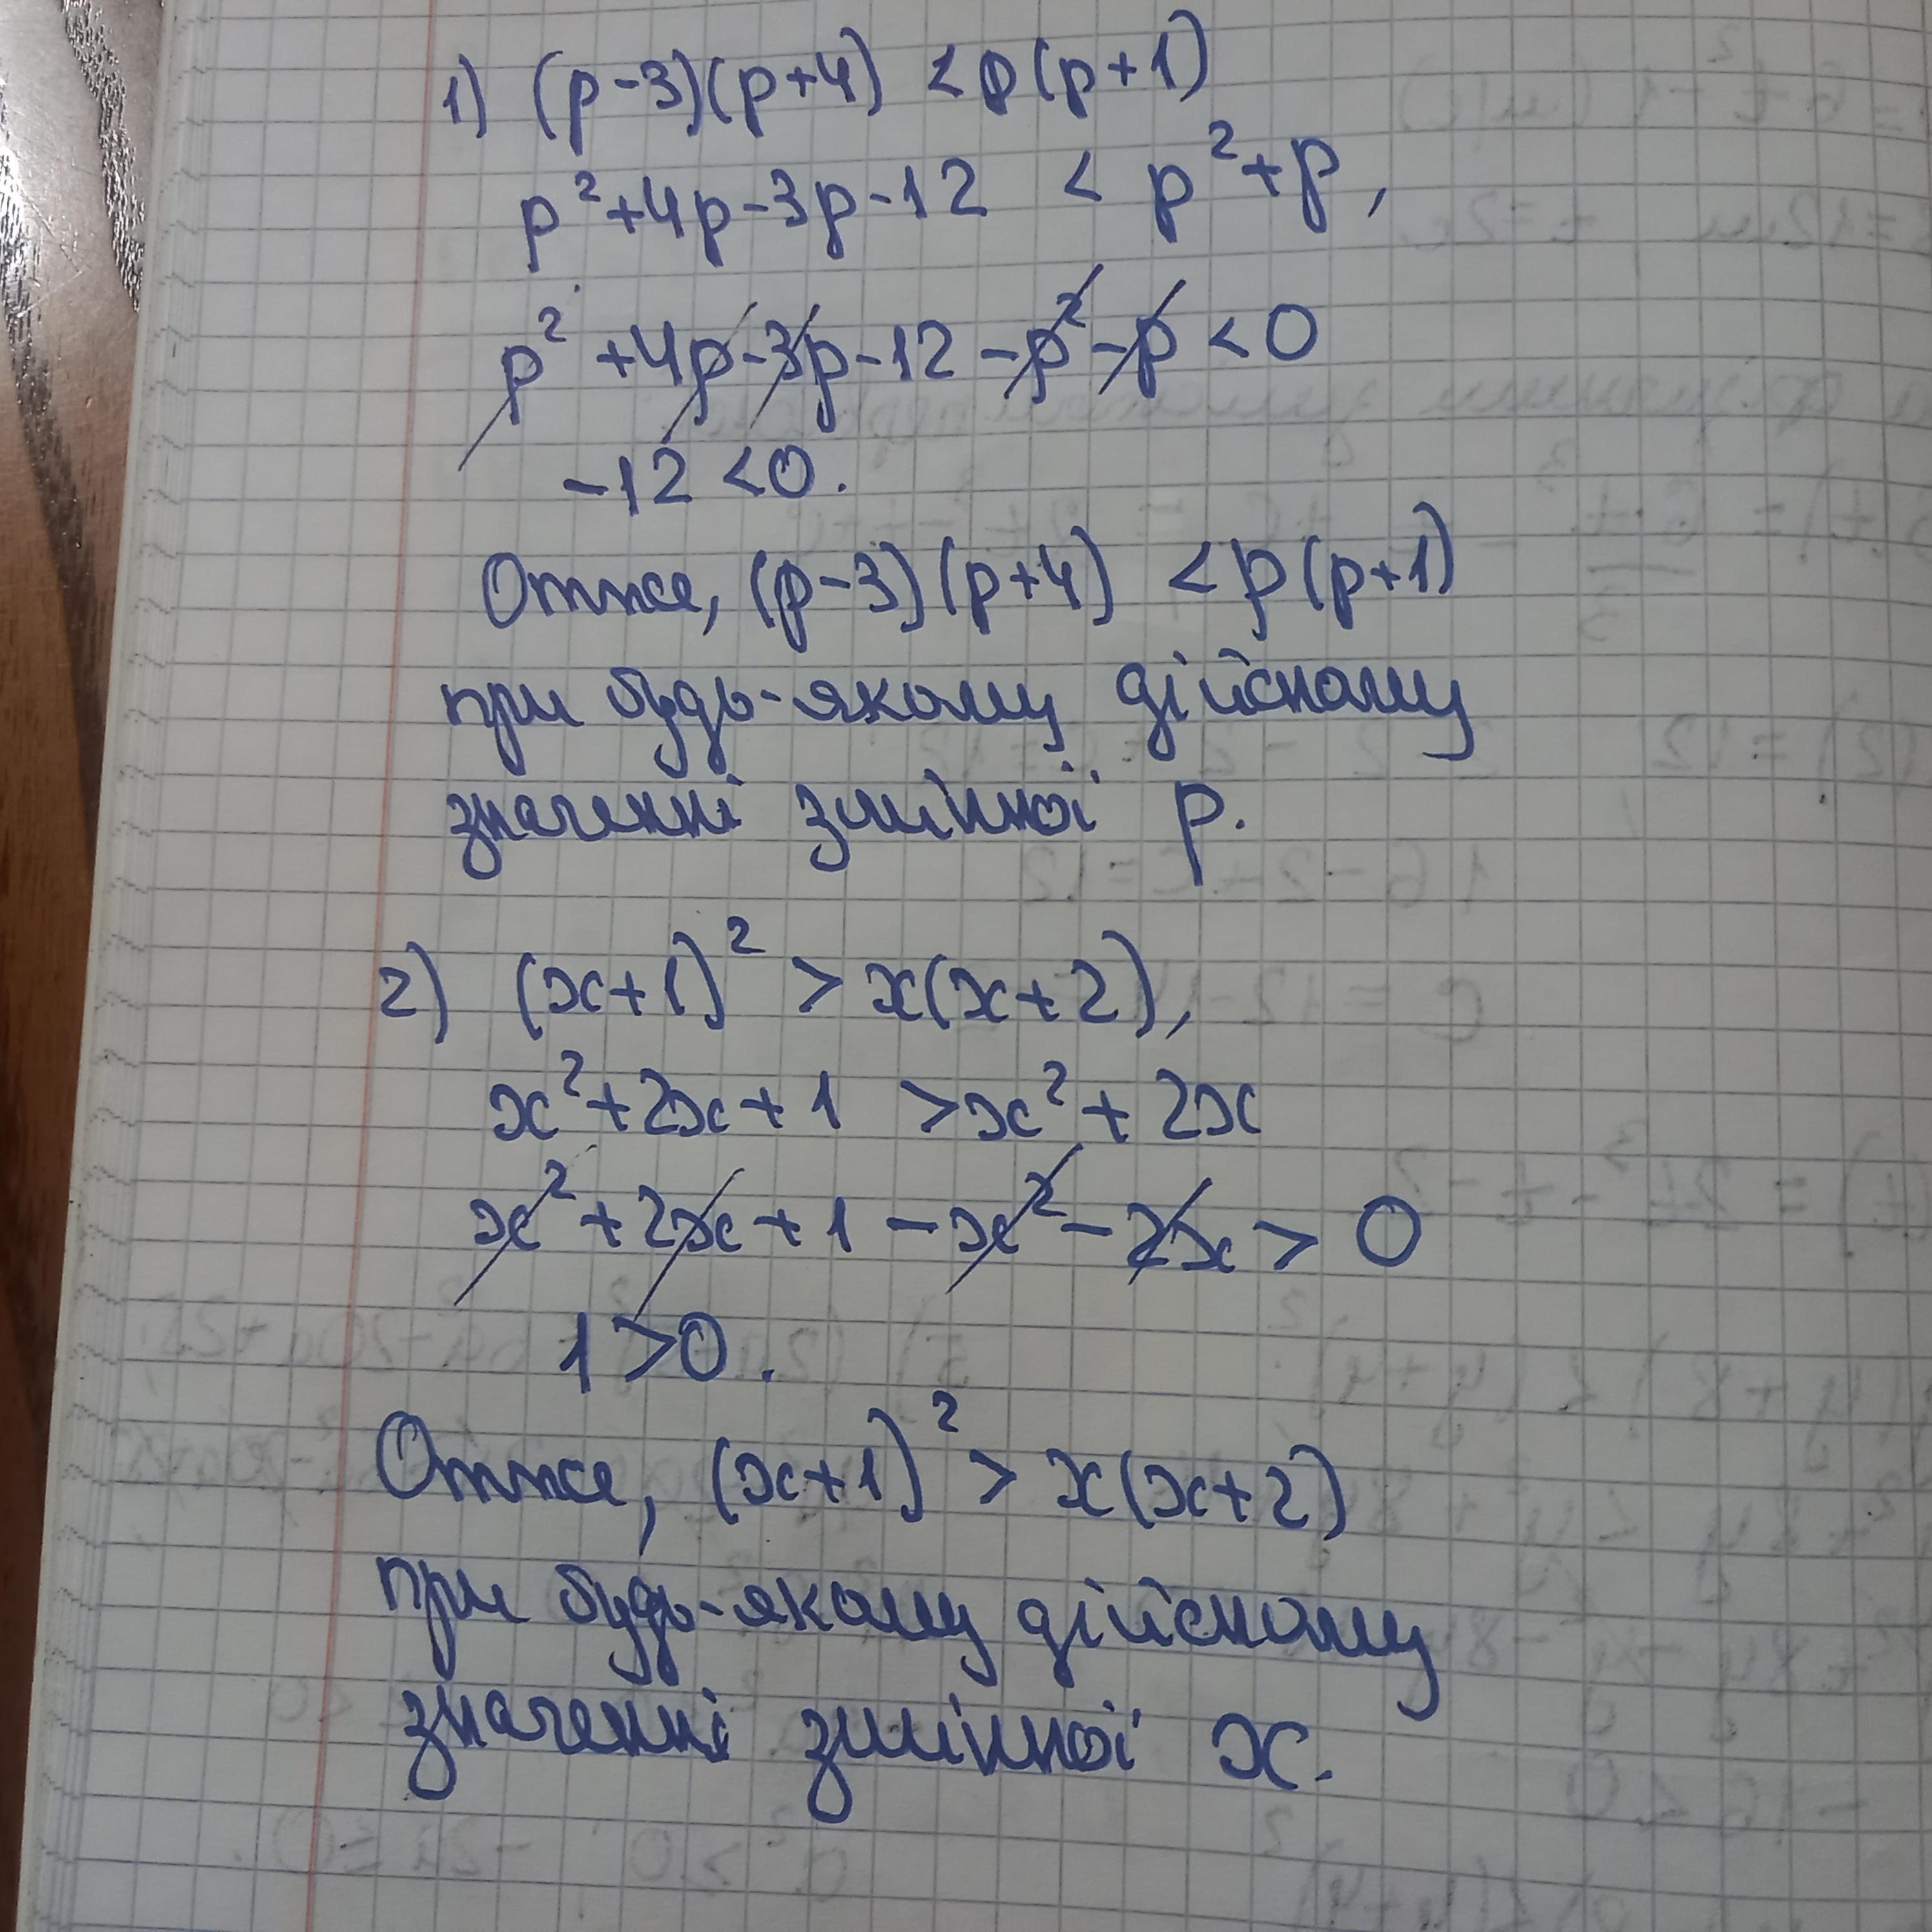 1) (p-3)(p+4) < p(p+1)
p²+4p-3p-12 < p²+p,
p²+4p-3p-12-p²-p<0
-12<0.
Отже, (p-3)(p+4) <p(p+1)
при будь-якому дійсному
значенні змінної p.
2) (x+1)² > x(x+2),
x²+2x+1 >x²+2x
x²+2x+1-x²-2x>0
1>0.
Отже, (x+1)² > x(x+2)
при будь-якому дійсному
значенні змінної x.